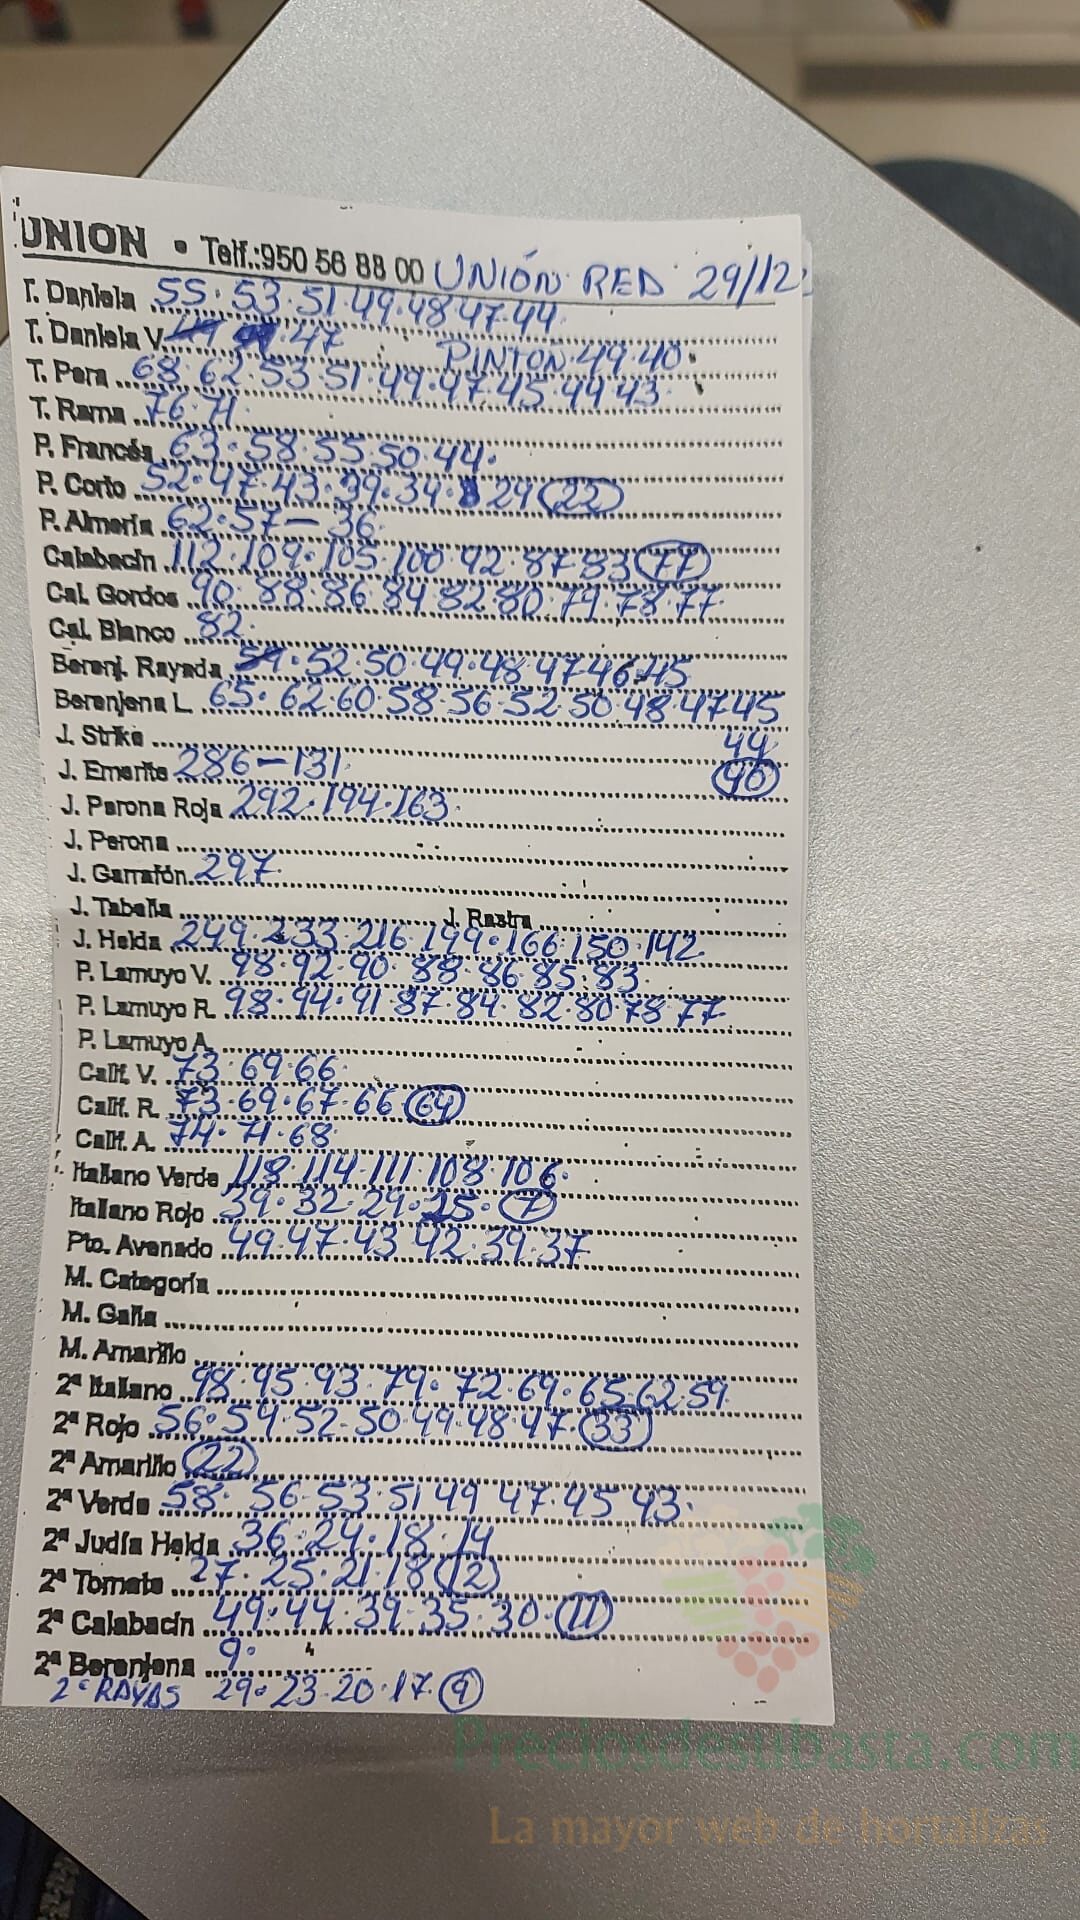 UNION • Telf.:950 56 88 00 UNIÓN RED 29/12
T. Daniela 55·53·51·49·48·47·44
T. Daniela V. 47 PINTON·49·40·
T. Pera 68·62·53·51·49·47·45·44·43
T. Rama 76·71·
P. Francés 63·58·55·50·44·
P. Corto 52·47·43·39·34·29 22
P. Almería 62·57—36
Calabacín 112·109·105·100·92·87·83 77
Cal. Gordos 90·88·86·84·82·80·79·78·77
Cal. Blanco 82·
Berenj. Rayada 52·50·49·48·47·46·45
Berenjena L. 65·62·60·58·56·52·50·48·47·45
J. Strike 44
J. Emerite 286—131 40
J. Perona Roja 292·194·163
J. Perona
J. Garrafón 297
J. Tabella J. Rastra
J. Helda 249·233·216·199·166·150·142
P. Lamuyo V. 98·92·90·88·86·85·83
P. Lamuyo R. 98·94·91·87·84·82·80·78·77
P. Lamuyo A.
Calif. V. 73·69·66
Calif. R. 73·69·67·66 64
Calif. A. 74·71·68
Italiano Verde 118·114·111·108·106·
Italiano Rojo 39·32·29·25·7
Pto. Asenado 49·47·43·42·39·37
M. Categoría
M. Galia
M. Amarillo
2ª Italiano 98·95·93·79·72·69·65·62·59
2ª Rojo 56·54·52·50·49·48·47·33
2ª Amarillo 22
2ª Verde 58·56·53·51·49·47·45·43·
2ª Judía Helda 36·24·18·14
2ª Tomate 27·25·21·18 12
2ª Calabacín 49·44·39·35·30·11
2ª Berenjena 9·
2ª RAYAS 29·23·20·17·9
Preciosdesubasta.com
La mayor web de hortalizas